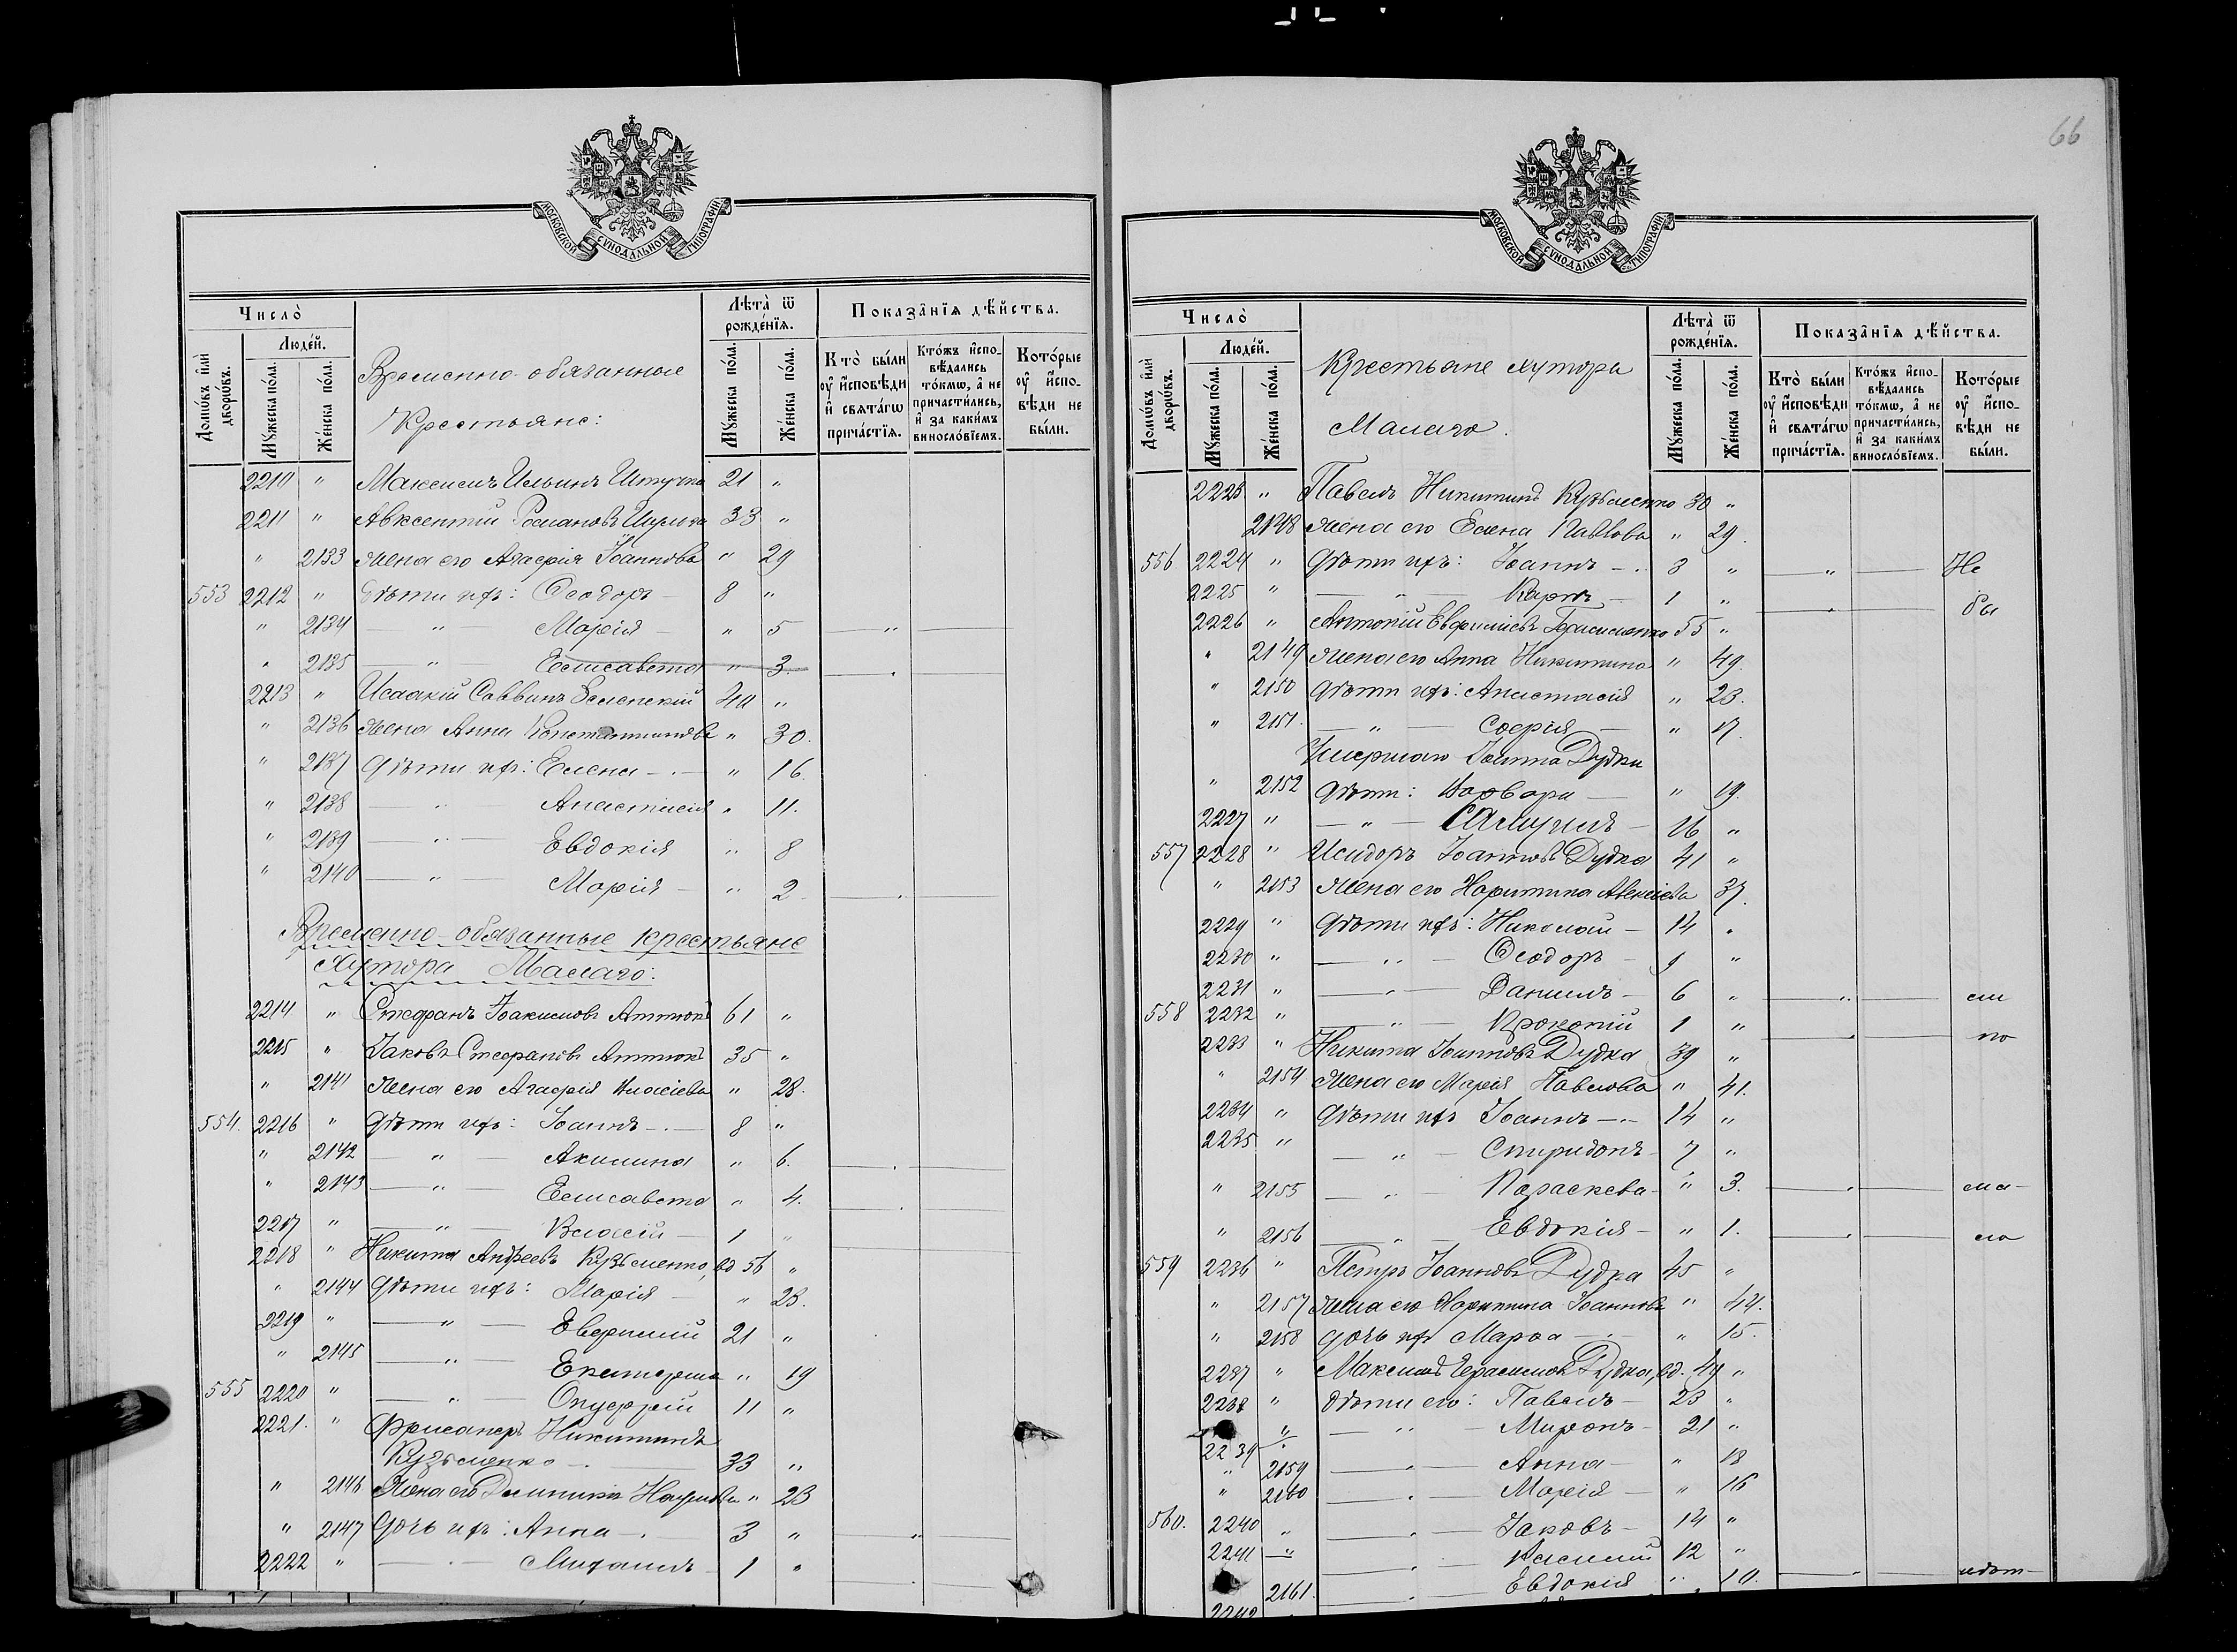 66
МОСКОВСКОЙ СѴНОДАЛЬНОЙ ТИПОГРАФІИ
Число̀
Людéй.
Домѡ́въ и҆лѝ дворѡ́въ.
Мꙋ́жеска по́ла.
Же́нска по́ла.
Временно-обязанные
Крестьяне:
Лѣта̀ ѿ рожде́нїѧ.
Мꙋ́жеска по́ла.
Же́нска по́ла.
Показа̑нїѧ дѣ́йства.
Кто̀ бы́ли оу҆ и҆сповѣди и҆ свѧта́гѡ прича́стїѧ.
Кто́жъ и҆спо-вѣдались то́кмѡ, а҆ не причасти́лись, и҆ за каки́мъ виносло́вїемъ.
Кото́рые оу҆ и҆спо-вѣди не бы́ли.
2210 " Максимъ Ильинъ 21 "
2211 " Авксентій Романовъ 33 "
" 2133 Жена его Агафія Іоаннова " 29
553 2212 " Дѣти ихъ: Ѳеодоръ — 8 "
" 2134 — " — Марія — " 5
" 2135 — " — Елисавета " 3
2213 " Исаакій Саввинъ Зеленскій 40 "
" 2136 Жена Анна Константинова " 30.
" 2137 Дѣти ихъ: Елена —.— " 16.
" 2138 — " — Анастасія " 11.
" 2139 — " — Евдокія " 8
" 2140 — " — Марія — " 2
Временно-обязанные крестьяне
Хутора Малаго:
2214 " Стефанъ Іоакимовъ 61 "
2215 " Іаковъ Стефановъ 35 "
" 2141 Жена его Агафія Власіева " 28.
554. 2216 " Дѣти ихъ: Іоаннъ —.— 8 "
" 2142 — " — Акилина " 6.
" 2143 — " — Елисавета " 4.
2217 " — " — Власій — 1 "
2218 " Никита Андреевъ Кузьменко, вд 56 "
" 2144 Дѣти ихъ: Марія — " 23.
2219 " — " — Евфимій 21 "
" 2145 — " — Екатерина " 19
555 2220 " — " — Онуфрій 11 "
2221. " Никитинъ
Кузьменко —. — 33 "
" 2146 Жена его Наумова " 23
" 2147 Дочь ихъ: Анна —. 3 "
2222 " — " — Михаилъ — 1 "
МОСКОВСКОЙ СѴНОДАЛЬНОЙ ТИПОГРАФІИ
Число̀
Людéй.
Домѡ́въ и҆лѝ дворѡ́въ.
Мꙋ́жеска по́ла.
Же́нска по́ла.
Крестьяне хутора
Малаго.
Лѣта̀ ѿ рожде́нїѧ.
Мꙋ́жеска по́ла.
Же́нска по́ла.
Показа̑нїѧ дѣ́йства.
Кто̀ бы́ли оу҆ и҆сповѣди и҆ свѧта́гѡ прича́стїѧ.
Кто́жъ и҆спо-вѣдались то́кмѡ, а҆ не причасти́лись, и҆ за каки́мъ виносло́вїемъ.
Кото́рые оу҆ и҆спо-вѣди не бы́ли.
2223 " Павелъ Никитинъ Кузьменко 30 "
2148 Жена его Елена Павлова " 29.
556 2224 " Дѣти ихъ: Іоаннъ —. 3 " — " — Не
2225 " — " — Карпъ — 1 " — " — бы
2226 " Антоній Евфиміевъ Герасименко 55 "
" 2149 Жена его Анна Никитина " 49.
" 2150 Дѣти ихъ: Анастасія " 23.
" 2151. — " — Софія — " 17.
Умершаго Іоанна Дудки
" 2152 Дѣти: Варвара — " 19.
2227 " — " — Самуилъ — 16 "
557 2228 " Исидоръ Іоанновъ Дудка 41 "
" 2153 Жена его Харитина Алексіева 37.
2229 " Дѣти ихъ: Николай — 14 "
2230 " — " — Ѳеодоръ — 9 "
2231 " — " — Даніилъ — 6 " — " — ли
558 2232 " — " — Прокопій 1 " — " — по
2233 " Никита Іоанновъ Дудка 39 "
" 2154 Жена его Марія Павлова " 41.
2234 " Дѣти ихъ Іоаннъ —.— 14 "
2235 " — " — Спиридонъ — 7 "
" 2155 — " — Параскева — " 3. — " — ма-
" 2156 — " — Евдокія — " 1. — " — ло
559 2236 " Петръ Іоанновъ Дудка 45 "
" 2157 Жена его Харитина Іоаннова " 44.
" 2158 Дочь ихъ Марѳа —.— " 15.
2237 " Максимъ Герасимовъ Дудка, вд. 49 "
2238 " Дѣти его: Павелъ — 23 "
2239 " — " — Миронъ — 21 "
" 2159 — " — Анна — " 18
" 2160 — " — Марія — " 16
560. 2240 " — " — Іаковъ — 14 "
2241 — " — " — Василій 12 "
2161. — " — Евдокія " 10. — " — лѣт-
2242